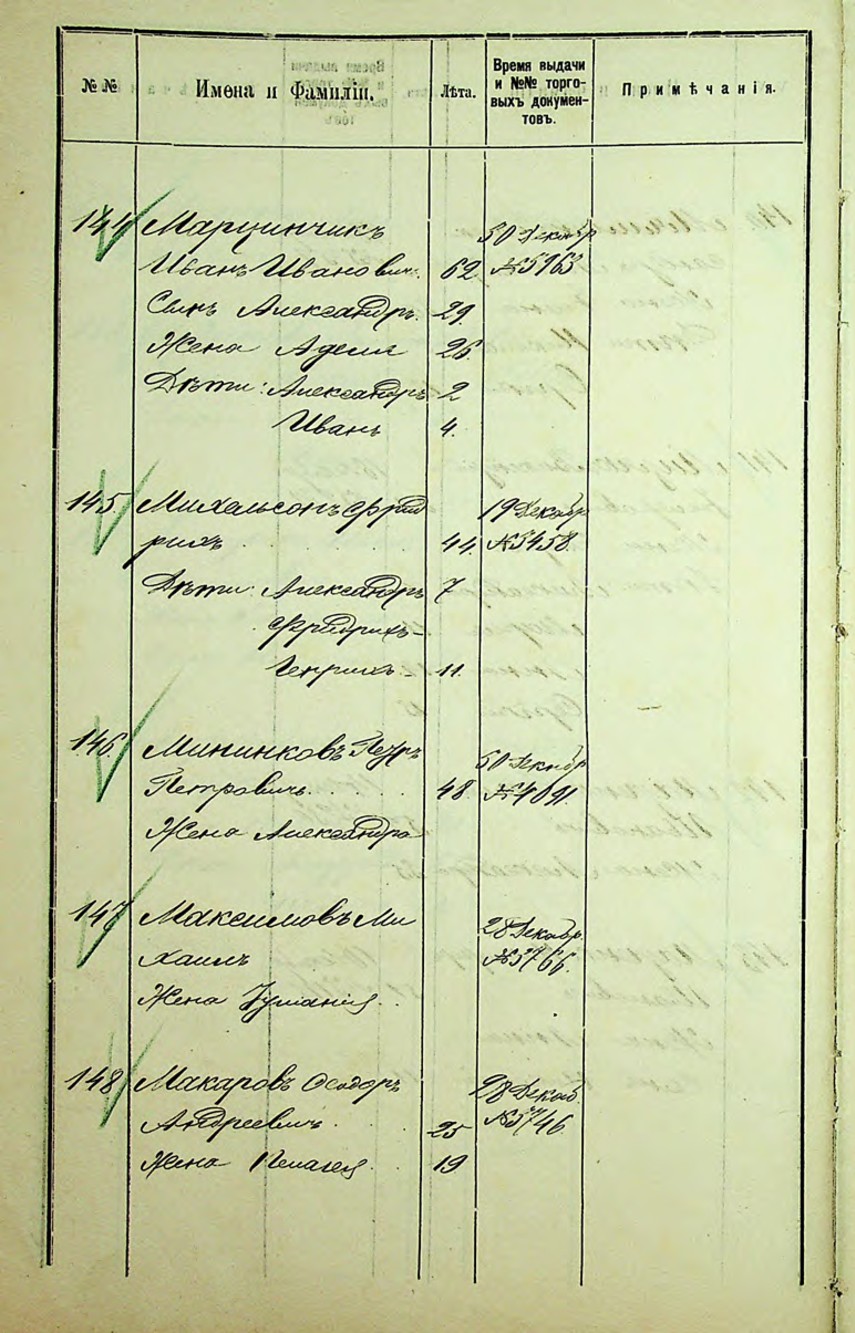 №№
Имена и Фамиліи.
Лѣта.
Время выдачи
и №№ торго-
выхъ докумен-
товъ.
Примѣчанія.
144 Марцинчикъ 30 Декабр
Иванъ Иванович. 62 №5963
Сынъ Александръ. 29.
Жена Адели 26.
Дѣти: Александръ 2
Иванъ 4.
145. Михельсонъ Фрид 19 Декабр
рихъ 44. №5458.
Дѣти: Александръ 7
Фридрихъ-
Генрихъ- 11.
146. Мининковъ Петръ 30 Декабр
Петровичъ. 48. №4091.
Жена Александра
147 Максимовъ Ми 28 Декабр.
хаилъ №5766.
Жена
148 Макаровъ Ѳеодоръ 28 Декаб.
Андреевичъ. 25 №5746.
Жена Пелагея. 19